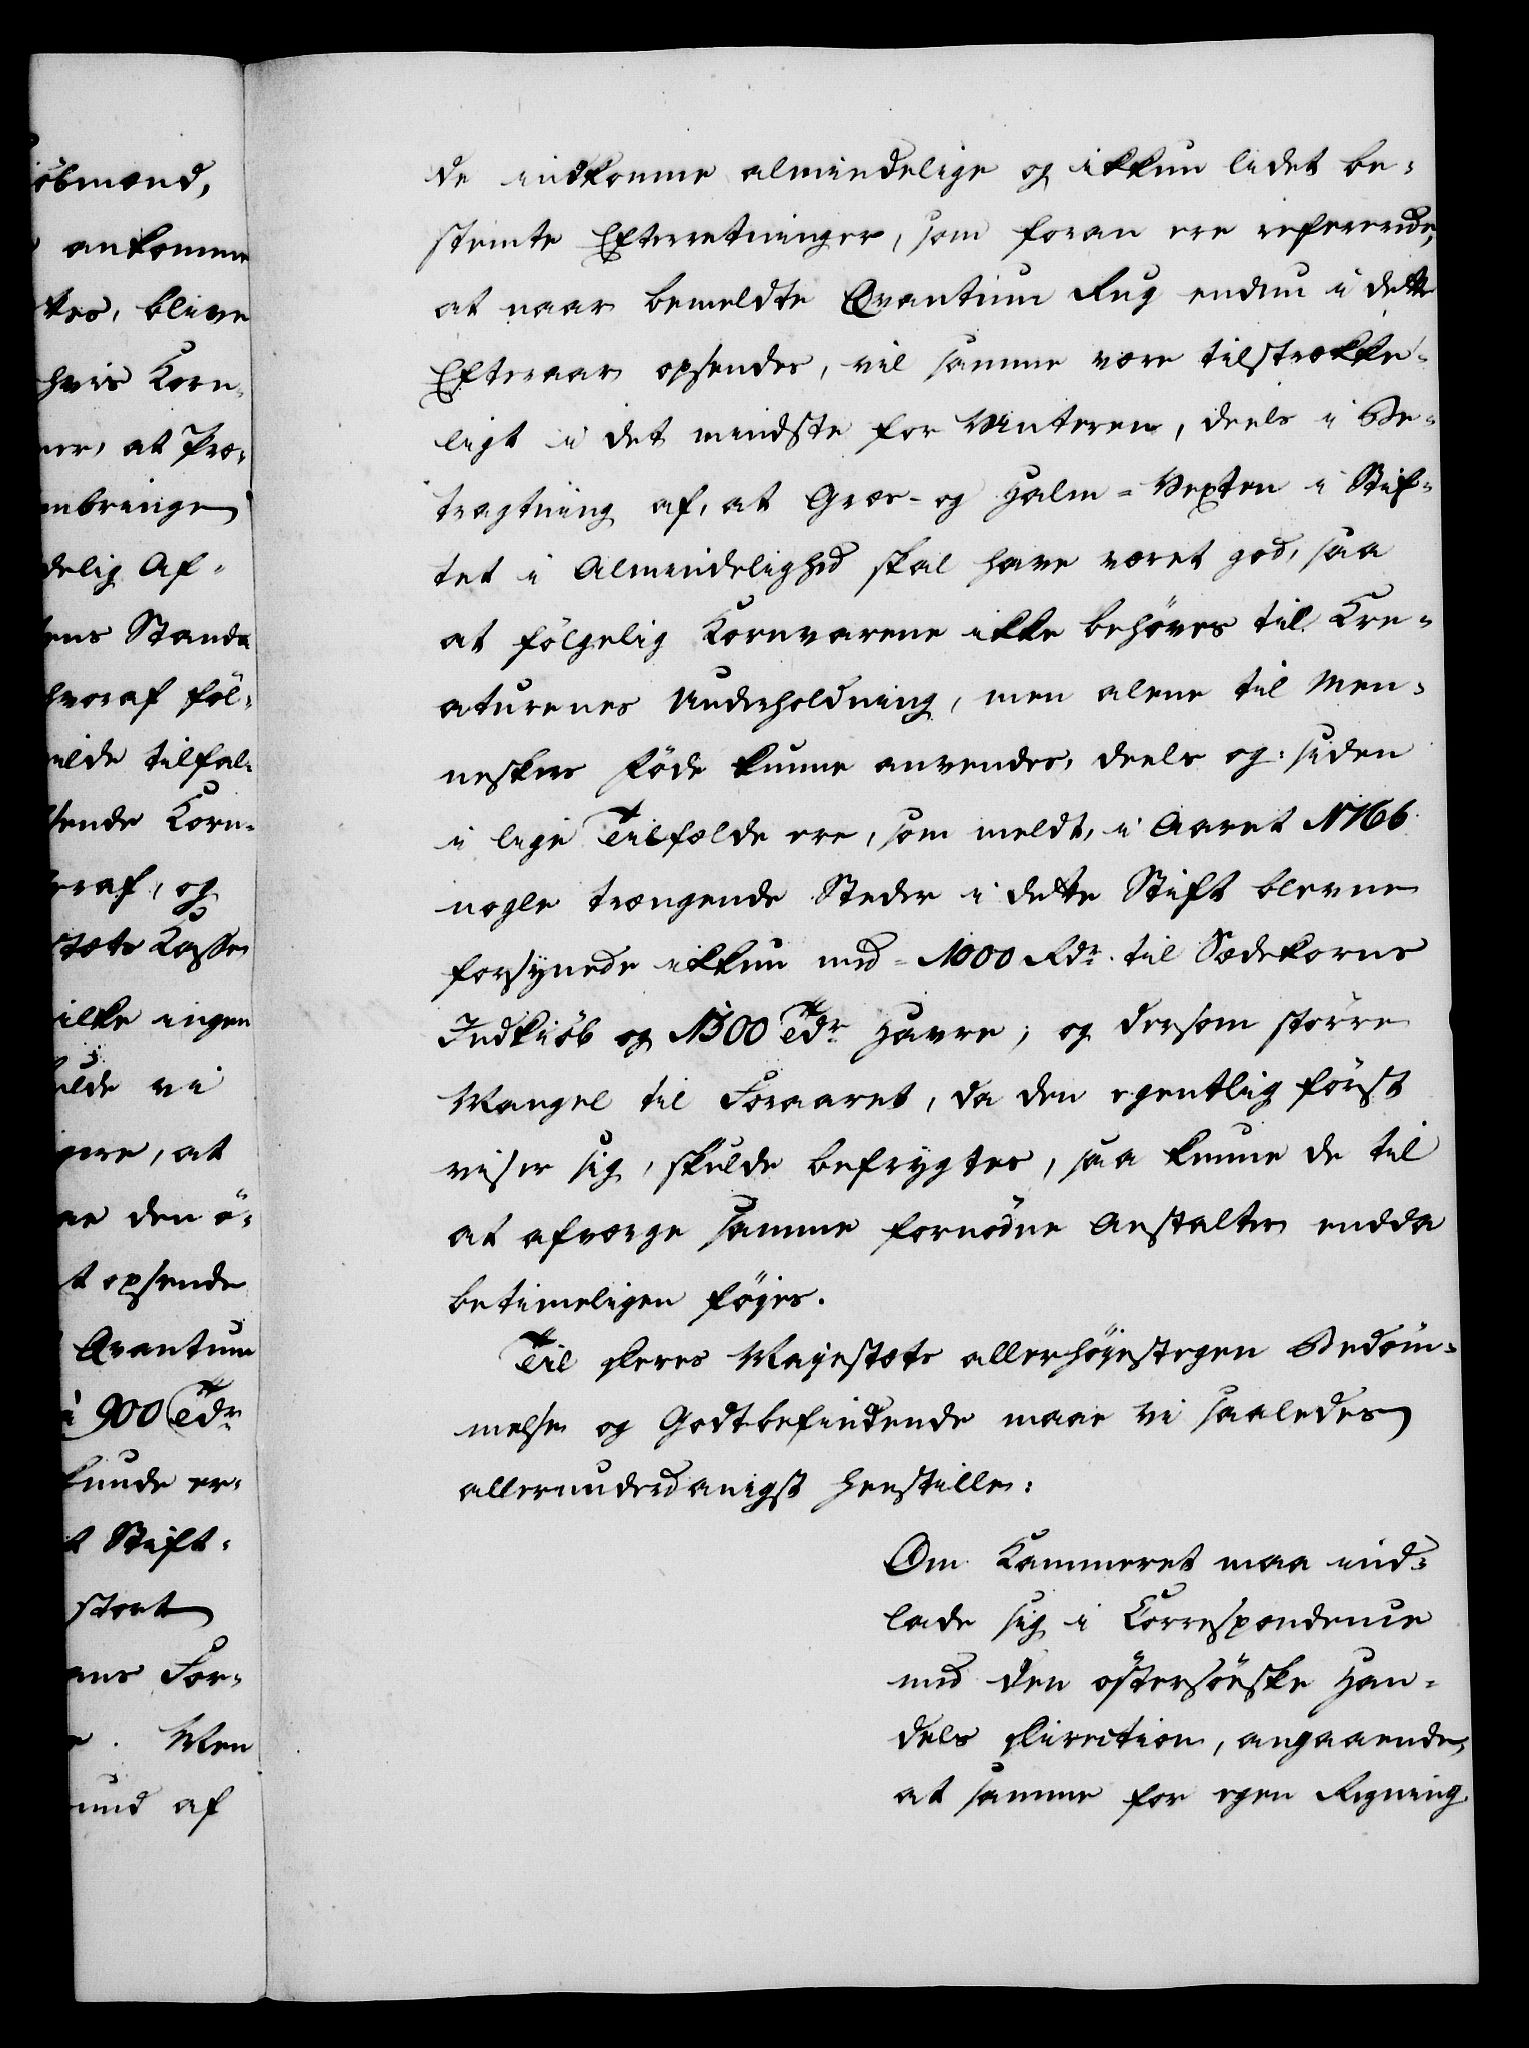 öbmænd,
ankomme
tes, blive
hvis Korn-
ner, at Præ-
mbringe
delig Af-
ens Stands
hvoraf föl-
ilde tilfal-
sende Korn-
eraf, og
stæts Kasse
ilke ingen
ulde vi
gere, at
ae den ö-
t opsende
Qvantum
i 900 Tdr
kunde er-
t Stift-
stort
ans For-
e. Men
und af
de indkomne almindelige og ikkun lidet be-
stemte Efterretninger, som foran ere refererede,
at naar bemeldte Qvantum Rug endnu i dette
Efteraar opsendes, vil samme være tilstrække-
ligt i det mindste for Vinteren, deels i Be-
tragtning af, at Græs- og Halm-Vexten i Stif-
tet i Almindelighed skal have været god, saa
at fölgelig Kornvarene ikke behöves til Kre-
aturenes Underholdning, men alene til Men-
neskers Föde kunne anvendes, deels og siden
i lige Tilfælde ere, som meldt, i Aaret 1766
nogle trængende Steder i dette Stift blevne
forsynede ikkun med 1000 Rdr. til Sædekorns
Indkiöb og 1500 Tdr Havre; og dersom större
Mangel til Foraaret, da den egentlig först
viser sig, skulde befrygtes, saa kunne de til
at afværge samme fornödne Anstalter endda
betimeligen föjes.
Til Deres Majestæts allerhöjestegen Bedöm-
melse og Godtbefindende maae vi saaledes
allerunderdanigst henstille:
Om Kammeret maa ind-
lade sig i Correspondence
med den östersöiske Han-
dels Direction, angaaende,
at samme for egen Regning